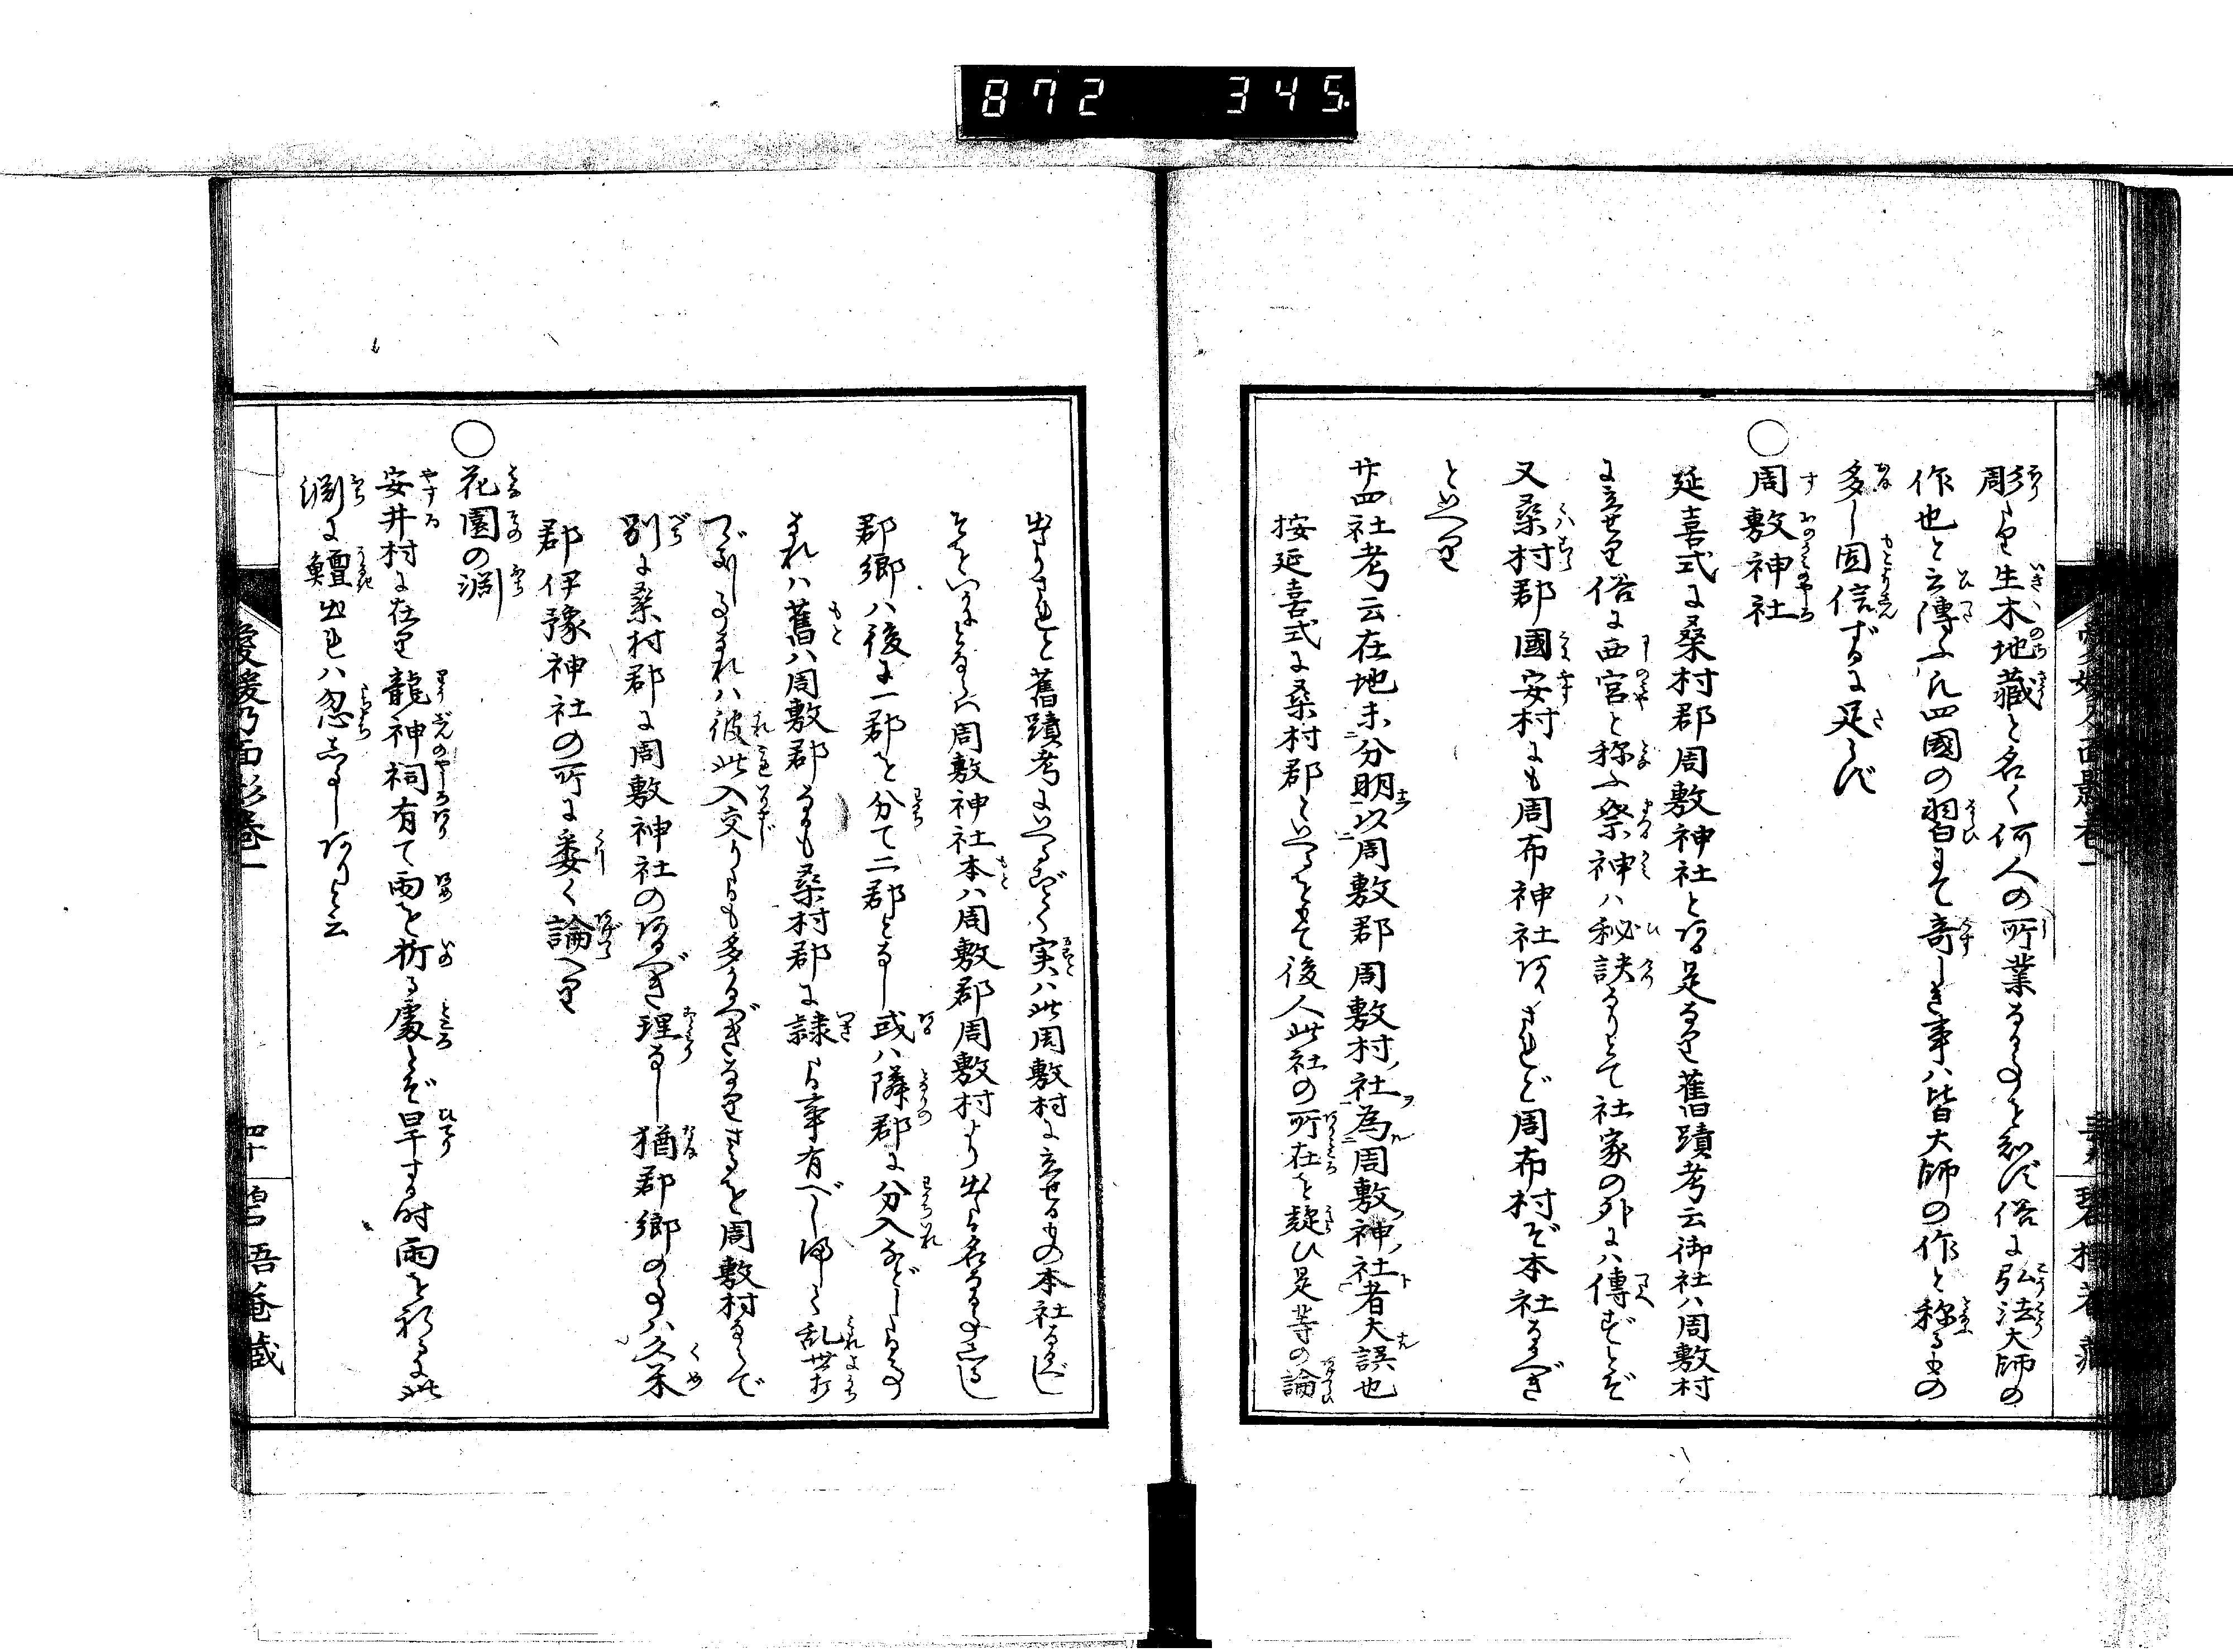 872 345
彫たり生木地藏と名く何人の所業なる事を知ず俗に弘法大師の
作也と云傳ふ凡四國の習にて竒しき事ハ皆大師の作と称るもの
多し固信ずるに足らず
○周敷神社
延喜式に桑村郡周敷神社とある是なり舊蹟考云御社ハ周敷村
に立せり俗に西宮と称ふ祭神ハ秘訣なりとて社家の外にハ傳ずとぞ
又桑村郡國安村にも周布神社ありされど周布村ぞ本社なるべき
といへり
廿四社考云在地未分明以周敷郡周敷村社為周敷神社者大誤也
按延喜式に桑村郡といへるをもて後人此社の所在を疑ひ是等の論
出たりされど舊蹟考にいへるごとく実ハ此周敷村に立せるもの本社なるべし
そをいかにとなら八周敷神社本ハ周敷郡周敷村より出たる名なる事しるし
郡郷ハ後に一郡を分て二郡となし或ハ隣郡に分入などしたる事
あれハ舊ハ周敷郡なるも桑村郡に隷たる事有べし
つゞりし事なれハ彼此入交りたるも多かるべきなりさるを周敷村ならで
別に桑村郡に周敷神社のあるべき理なし猶郡郷の事ハ久米
郡伊豫神社の所に委く論へり
○花園の淵
安井村に在り龍神祠有て雨を祈る處とぞ旱する時雨を祈るに此
淵に鱣出れハ忽しるしありと云
愛媛乃面影巻一
四十
碧梧菴藏